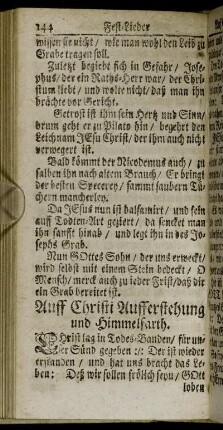 144 Fest-Lieder
wissen sie nicht / wie man wohl den Leib zu
Grabe tragen soll.
Zuletzt begiebt sich in Gefahr / Jose-
phus / der ein Raths-Herr war / der Chri-
stum liebt / und wolte nicht / daß man ihn
brächte vor Gericht.
Getrost ist ihm sein Hertz und Sinn /
drum geht er zu Pilato hin / begehrt den
Leichnam JEsu Christ / der ihm auch nicht
verwegert ist.
Bald kömmt der Nicodemus auch / zu
salben ihn nach altem Brauch / Er bringt
der besten Specerey / sammt saubern Tü-
chern mancherley.
Da JEsus nun ist balsamirt / und fein
auff Todten-Art geziert / da sencket man
ihn sanfft hinab / und legt ihn in des Jo-
sephs Grab.
Nun GOttes Sohn / der uns erweckt /
wird selbst mit einem Stein bedeckt / O
Mensch / merck auch zu jeder Frist / daß dir
ein Grab bereitet ist.
Auff Christi Aufferstehung
und Himmelfarth.
CHrist lag in Todes-Banden / für un-
ser Sünd gegeben :/: Der ist wieder
erstanden / und hat uns bracht das Le-
ben : Deß wir sollen frölich seyn / GOtt
loben